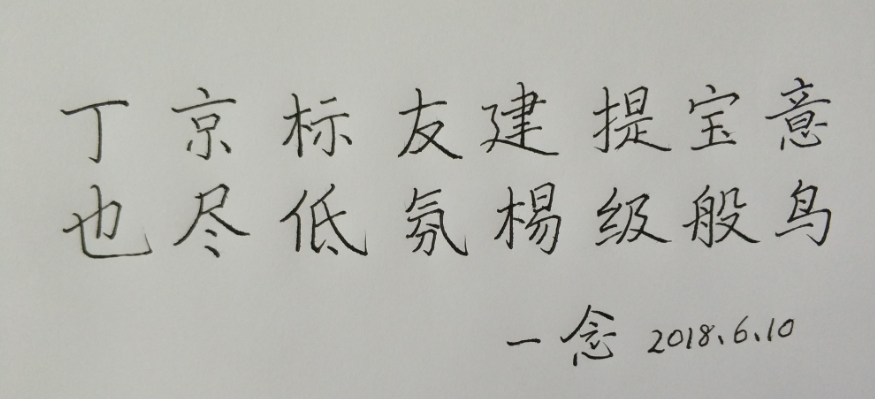 丁京标友建提宝意
也尽低氛楊级般鸟
一念 2018.6.10